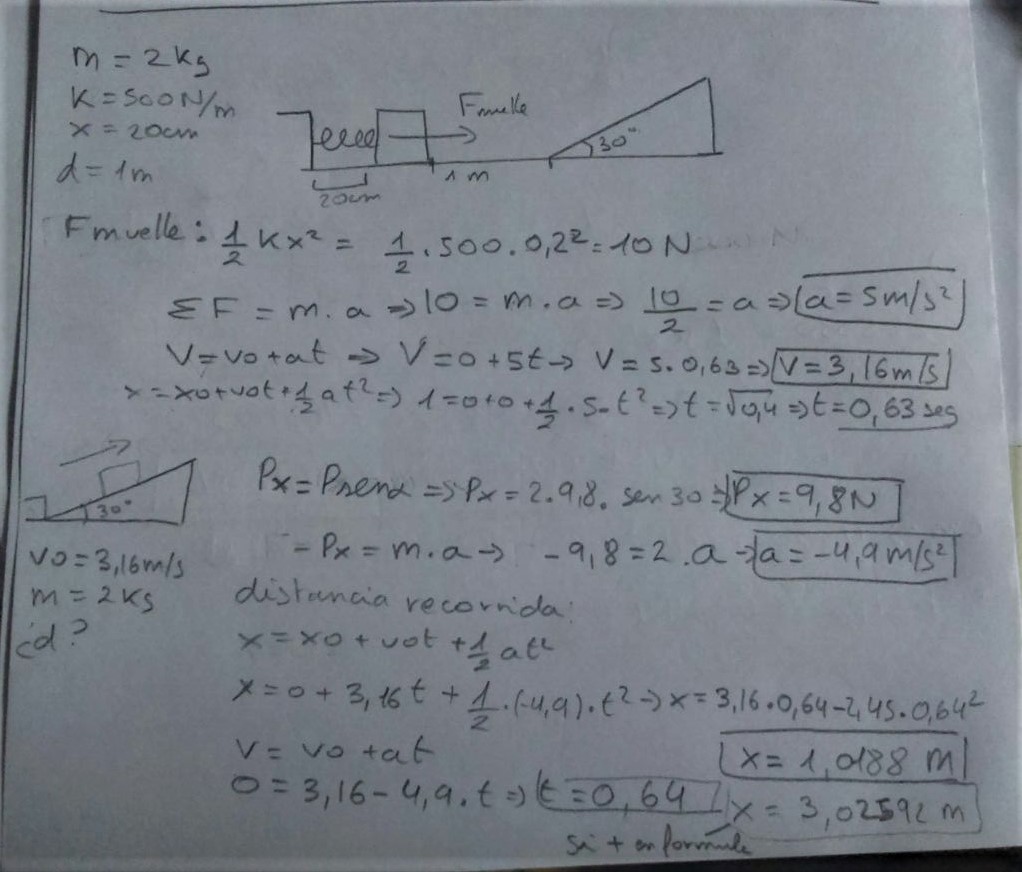 m = 2kg
K = 500N/m
x = 20cm
d = 1m
Fmuelle
30°
20cm
1 m
Fmuelle: 1/2 Kx² = 1/2 . 500 . 0,2² = 10 N
ΣF = m . a => 10 = m . a => 10/2 = a => a = 5m/s²
V = vo + at => V = 0 + 5t -> V = 5 . 0,63 => V = 3,16m/s
x = xo + vot + 1/2 at² => 1 = 0 + 0 + 1/2 . 5 . t² => t = √0,4 => t = 0,63 seg
30°
Px = Psenα => Px = 2 . 9,8 . sen 30 => Px = 9,8N
vo = 3,16m/s
- Px = m . a -> - 9,8 = 2 . a -> a = -4,9m/s²
m = 2kg
distancia recorrida:
¿d?
x = xo + vot + 1/2 at²
x = 0 + 3,16t + 1/2 . (-4,9) . t² -> x = 3,16 . 0,64 - 2,45 . 0,64²
V = vo + at
x = 1,0188 m
0 = 3,16 - 4,9 . t => t = 0,64
x = 3,02592 m
si + en formule